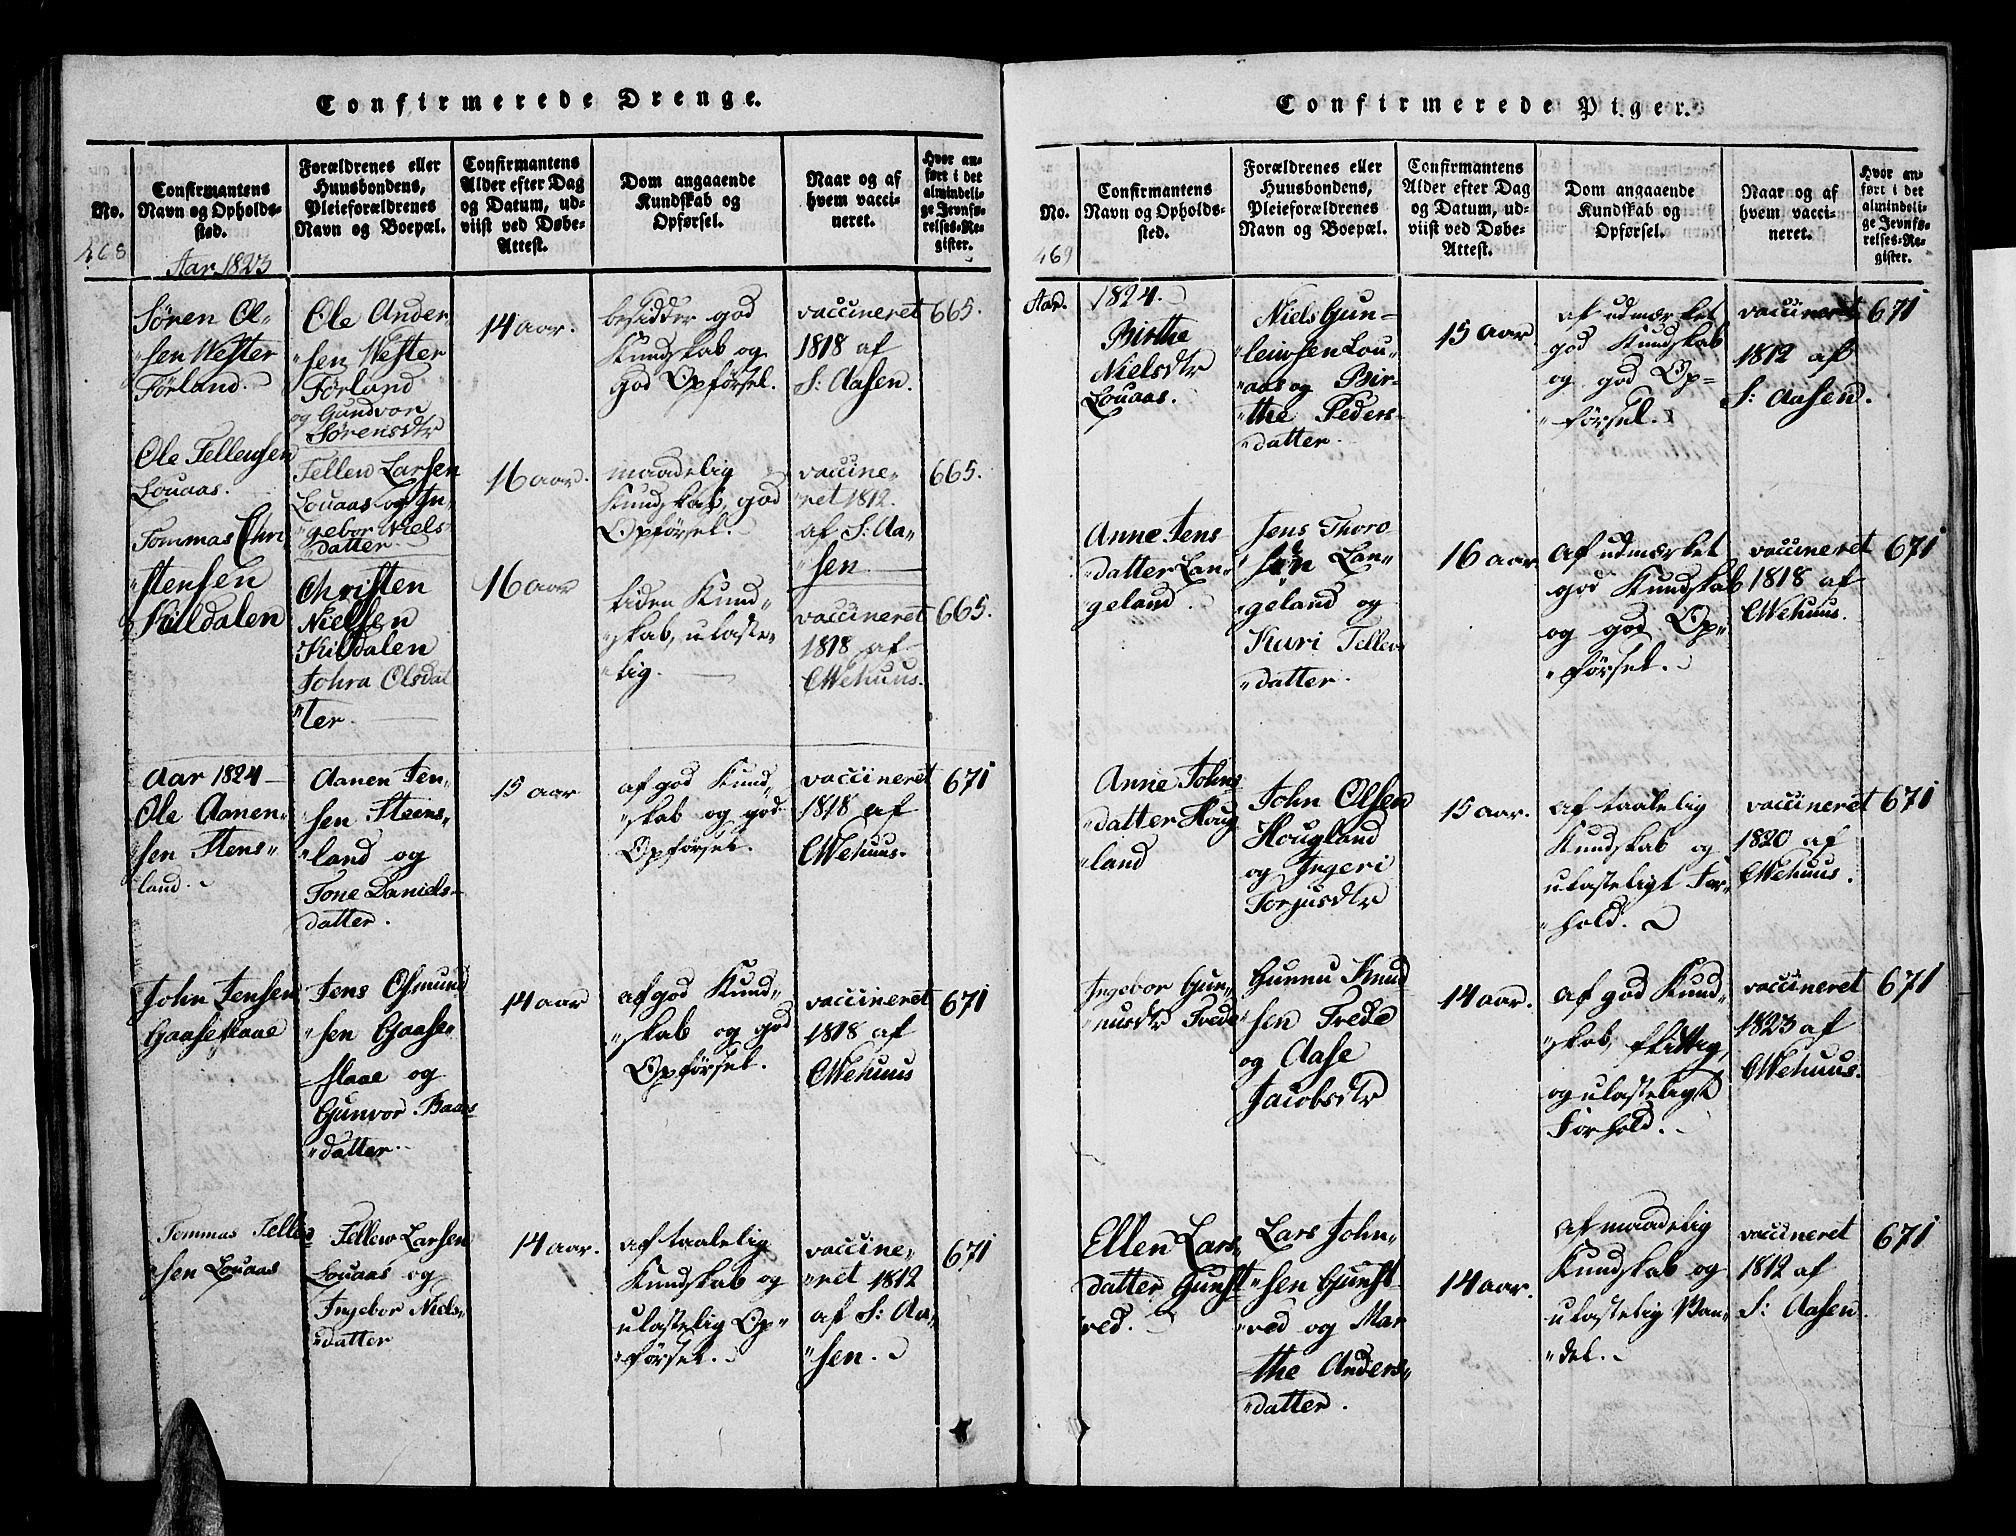 Confirmerede Drenge.
No.
Confirmantens
Navn og Opholds-
sted.
Forældrenes eller
Huusbondens,
Pleieforældrenes
Navn og Boepæl.
Confirmantens
Alder efter Dag
og Datum, ud-
viist ved Døbe-
Attest.
Dom angaaende
Kundskab og
Opførsel.
Naar og af
hvem vacci-
neret.
Hvor an-
ført i det
almindeli-
ge Jevnfø-
relses-Re-
gister.
468
Aar 1823
Søren Ol-
"sen Vester
Førland.
Ole Ander-
"sen Vester
Førland
og Gundvor
Sørensdtr
14 aar.
besidder god
Kundskab og
god Opførsel.
vaccineret
1818 af
S: Aasen.
665.
Ole Tellewsen
Louaas.
Tellew Larsen
Louaas og In-
"gebor Niels-
"datter.
16 aar.
maadelig
Kundskab, god
Opførsel.
vaccine-
"ret 1812.
af S: Aa-
"sen
665.
Tommas Chri-
"stensen
Kildalen
Christen
Nielsen
Kildalen
Johra Olsdat
"ter.
16 aar
liden Kund-
"skab, ulaste-
"lig.
vaccineret
1818 af
CWehuus.
665.
Aar 1824
Ole Aanen-
sen Stens-
land.
Aanen Jen-
"sen Steens-
"land og
Tone Daniels-
datter.
15 aar
af god Kund-
"skab og god
Opførsel.
vaccineret
1818 af
CWehuus.
671
John Jensen
Gaaseflaae
Jens Osmund
"sen Gaase-
flaae og
Gunvor Baars
"datter.
14 aar
af god Kund-
"skab og god
Opførsel.
vaccineret
1818 af
CWehuus
671
Tommas Tellew
"sen Louaas
Tellew Larsen
Louaas og
Ingebor Niels-
"datter
14 aar.
af taalelig
Kundskab og
ulastelig Op-
"førsel.
vaccine-
"ret 1812
af S: Aa-
"sen.
671
Confirmerede Piger.
No.
Confirmantens
Navn og Opholds-
sted.
Forældrenes eller
Huusbondens,
Pleieforældrenes
Navn og Boepæl.
Confirmantens
Alder efter Dag
og Datum, ud-
viist ved Døbe-
Attest.
Dom angaaende
Kundskab og
Opførsel.
Naar og af
hvem vacci-
neret.
Hvor an-
ført i det
almindeli-
ge Jevnfø-
relses-Re-
gister.
469
Aar. 1824.
Birthe
Nielsdtr
Louaas.
Niels Gun-
"leiwsen Lou-
"aas og Bir-
"the Peders-
"datter.
15 aar.
af udmærket
god Kundskab
og god Op-
"førsel.
vaccineret
1812 af
S: Aasen.
671
Anne Jens
"datter Lan-
geland.
Jens Thoro
"sen Lan-
"geland og
Kuri Tellews
"datter.
16 aar
af udmærket
god Kundskab
og god Op-
"førsel.
vaccineret
1818 af
CWehuus.
671
Anne Johns
"datter Houg
"land
John Olsen
Hougland
og Ingeri
Torjusdtr
15 aar.
af taalelig
Kundskab og
ulasteligt For-
"hold.
vaccineret
1820 af
CWehuus.
671
Ingebor Gun-
"nusdtr Trede
Gunnu Knud
"sen Trede
og Aase
Jacobsdtr
14 aar.
af god Kund-
"skab, flittig,
og ulasteligt
Forhold.
vaccineret
1823 af
CWehuus.
671
Ellen Lars-
datter Gunst
red.
Lars John-
"sen Gunst-
"red og Mar
"the Anders-
"datter.
14 aar.
af maadelig
Kundskab og
ulastelig Van-
"del.
vaccineret
1812 af
S: Aasen.
671